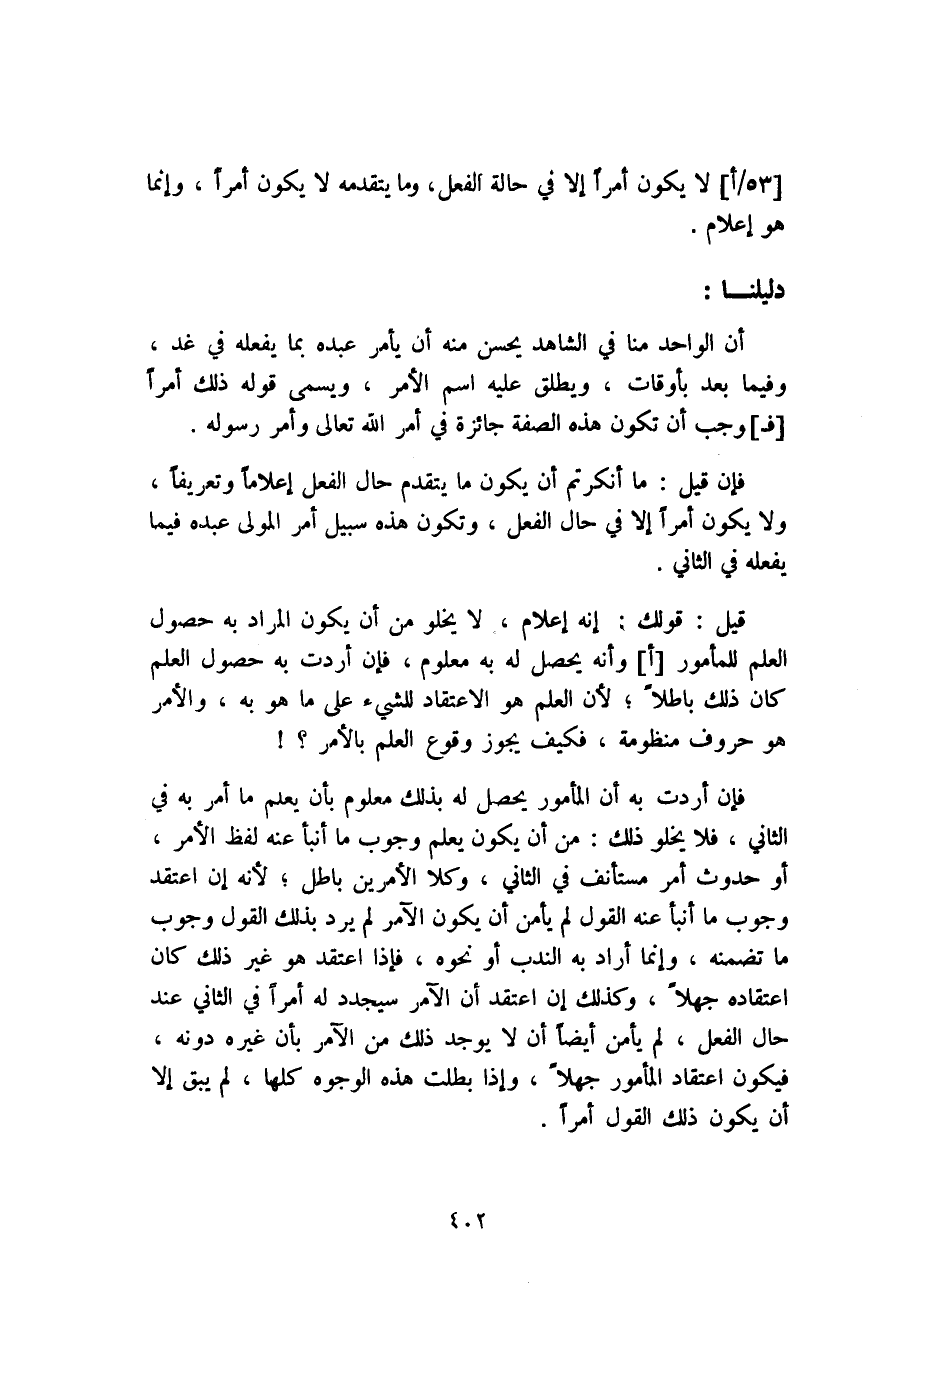 [٥٣/أ] لا يكون أمراً إلا في حالة الفعل، وما يتقدمه لا يكون أمراً ، وإنما
هو إعلام .
دليلنـــا :
أن الواحد منا في الشاهد يحسن منه أن يأمر عبده بما يفعله في غد ،
وفيما بعد بأوقات ، ويطلق عليه اسم الأمر ، ويسمى قوله ذلك أمراً
[فـ] وجب أن تكون هذه الصفة جائزة في أمر الله تعالى وأمر رسوله .
فإن قيل : ما أنكرتم أن يكون ما يتقدم حال الفعل إعلاماً وتعريفاً ،
ولا يكون أمراً إلا في حال الفعل ، وتكون هذه سبيل أمر المولى عبده فيما
يفعله في الثاني .
قيل : قولك : إنه إعلام ، لا يخلو من أن يكون المراد به حصول
العلم للمأمور [أ] وأنه يحصل له به معلوم ، فإن أردت به حصول العلم
كان ذلك باطلاً ؛ لأن العلم هو الاعتقاد للشيء على ما هو به ، والأمر
هو حروف منظومة ، فكيف يجوز وقوع العلم بالأمر ؟ !
فإن أردت به أن المأمور يحصل له بذلك معلوم بأن يعلم ما أمر به في
الثاني ، فلا يخلو ذلك : من أن يكون يعلم وجوب ما أنبأ عنه لفظ الأمر ،
أو حدوث أمر مستأنف في الثاني ، وكلا الأمرين باطل ؛ لأنه إن اعتقد
وجوب ما أنبأ عنه القول لم يأمن أن يكون الآمر لم يرد بذلك القول وجوب
ما تضمنه ، وإنما أراد به الندب أو نحوه ، فإذا اعتقد هو غير ذلك كان
اعتقاده جهلاً ، وكذلك إن اعتقد أن الآمر سيجدد له أمراً في الثاني عند
حال الفعل ، لم يأمن أيضاً أن لا يوجد ذلك من الآمر بأن غيره دونه ،
فيكون اعتقاد المأمور جهلاً ، وإذا بطلت هذه الوجوه كلها ، لم يبق إلا
أن يكون ذلك القول أمراً .
٤٠٢